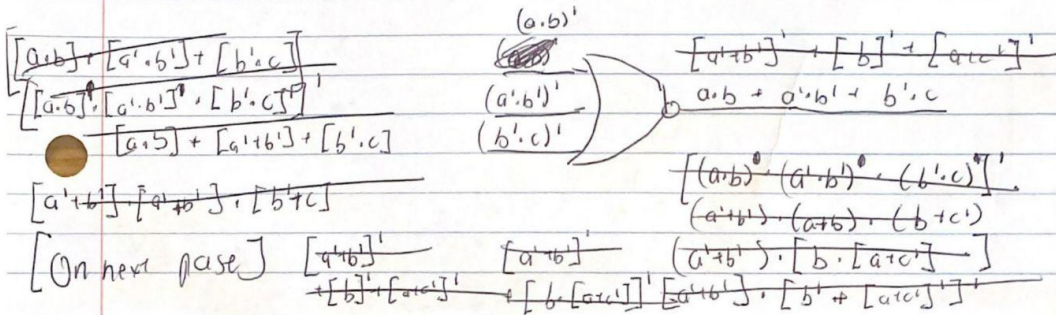 [[a·b] + [a'·b'] + [b'·c]]
[[a·b]'·[a'·b']'·[b'·c]']'
[a·b] + [a'+b'] + [b'·c]
[a'+b']·[a'+b']·[b'+c]
[On next page]
(a·b)'
(a'·b')'
(b'·c)'
[a'+b']' + [b]' + [a+c']'
a·b + a'·b' + b'·c
[(a·b)'·(a'·b')'·(b'·c)']'
(a'+b')·(a+b)·(b+c')
(a'+b')·[b·[a+c']]
[a'+b']'
+[b]'+[a+c']'
[a'+b']'
+[b·[a+c']]'
[a'+b']·[b'+[a+c']']'